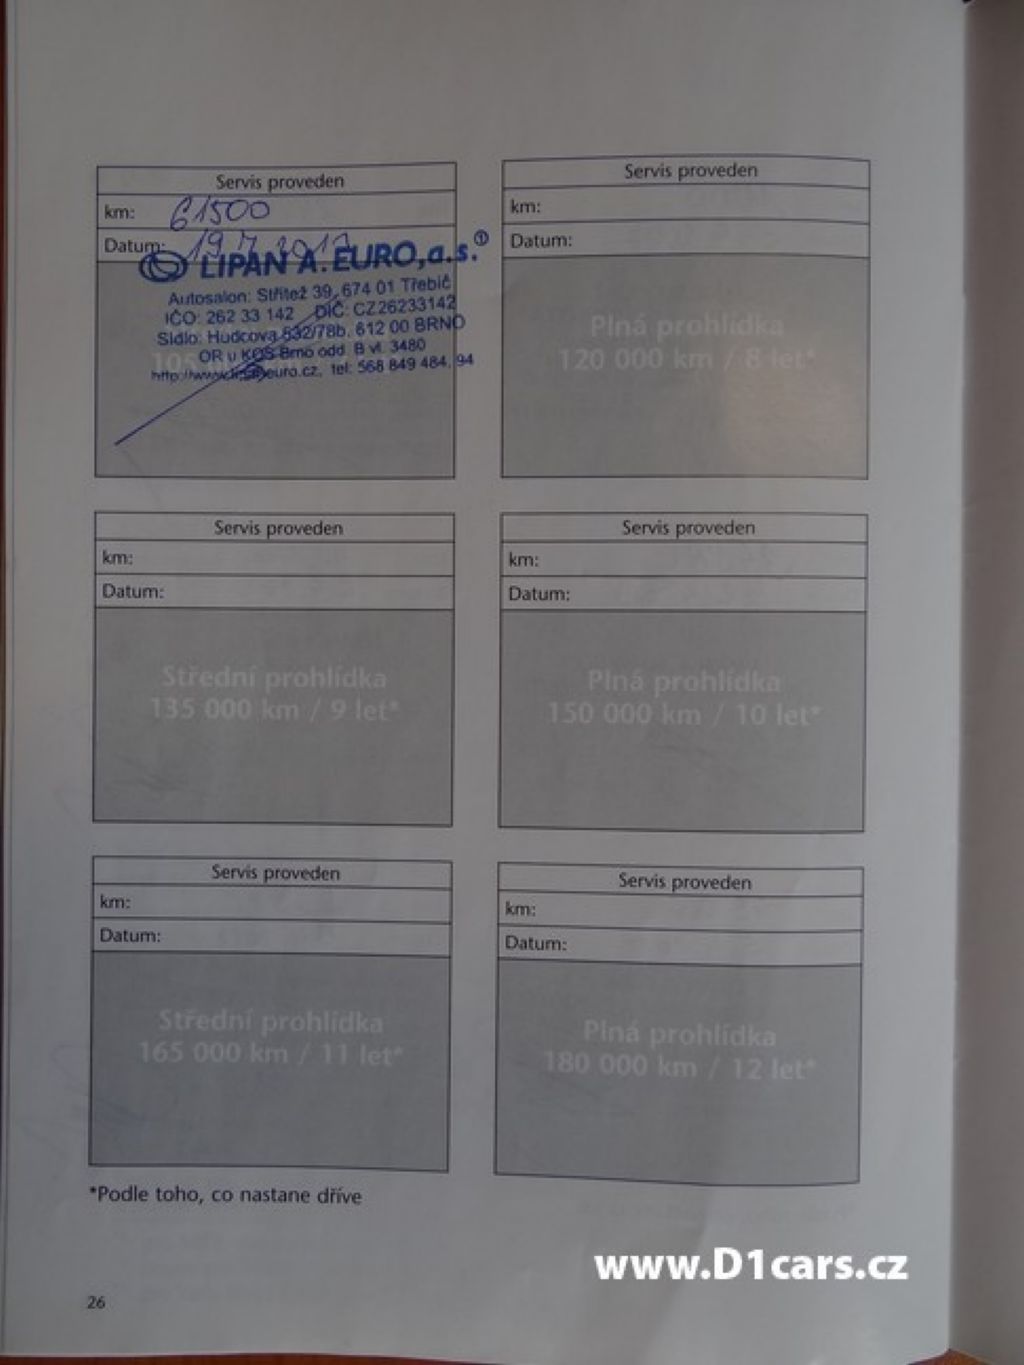 Servis proveden
km: 61500
Datum: 19.7.2013
LIPAN A.EURO,a.s. ①
Autosalon: Střítež 39, 674 01 Třebíč
IČO: 262 33 142 DIČ: CZ26233142
Sídlo: Hudcova 532/78b, 612 00 BRNO
OR u KOS Brno odd. B vl. 3480
tel: 568 849 484, 94
Servis proveden
km:
Datum:
Plná prohlídka
120 000 km / 8 let*
Servis proveden
km:
Datum:
Střední prohlídka
135 000 km / 9 let*
Servis proveden
km:
Datum:
Plná prohlídka
150 000 km / 10 let*
Servis proveden
km:
Datum:
Střední prohlídka
165 000 km / 11 let*
Servis proveden
km:
Datum:
Plná prohlídka
180 000 km / 12 let*
*Podle toho, co nastane dříve
www.D1cars.cz
26